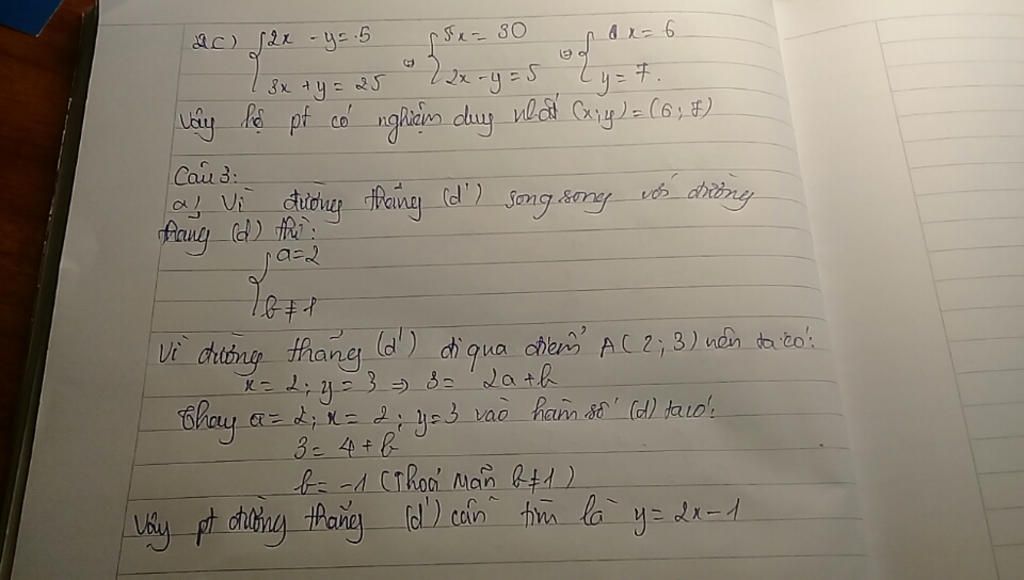 2c) { 2x - y = 5 ⇔ { 5x = 30 ⇔ { x = 6
3x + y = 25 2x - y = 5 y = 7.
Vậy hệ pt có nghiệm duy nhất (x; y) = (6; 7)
Câu 3:
a, Vì đường thẳng (d') song song với đường
thẳng (d) thì:
{ a = 2
b ≠ 1
Vì đường thẳng (d') đi qua điểm A(2; 3) nên ta có:
x = 2; y = 3 ⇒ 3 = 2a + b
Thay a = 2; x = 2; y = 3 vào hàm số (d) ta có:
3 = 4 + b
b = -1 (Thoả mãn b ≠ 1)
Vậy pt đường thẳng (d') cần tìm là y = 2x - 1